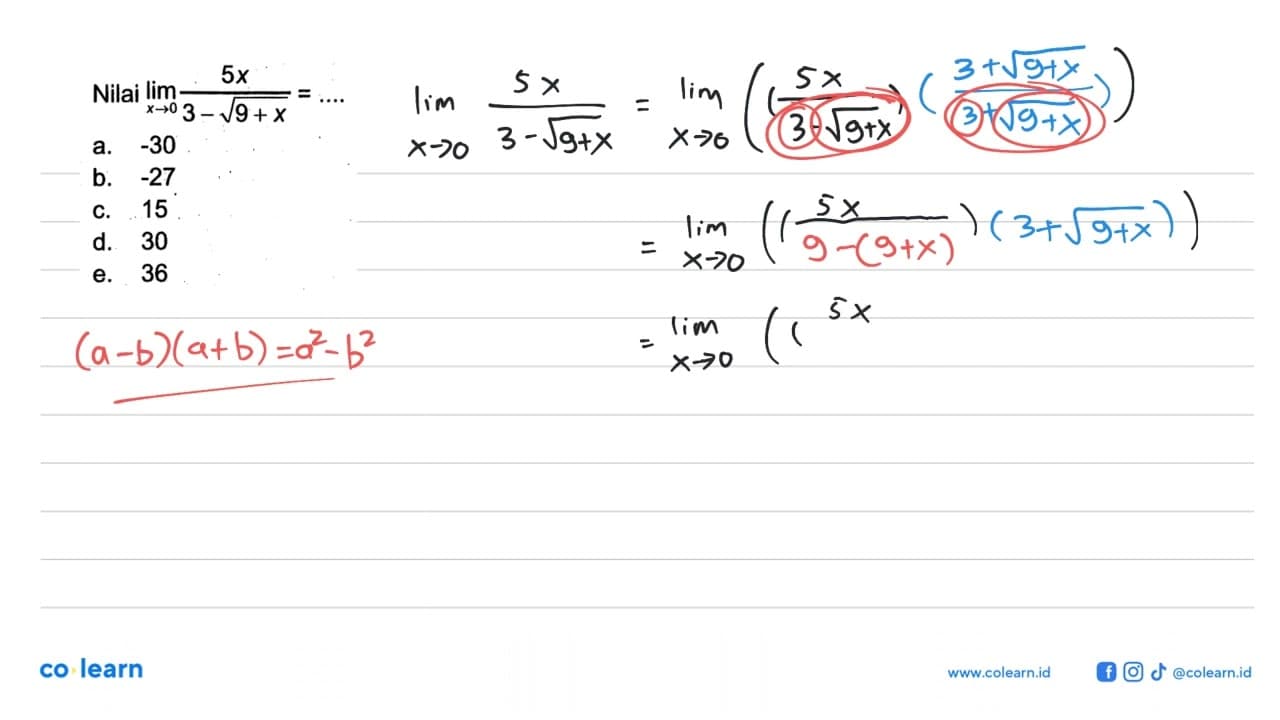 Nilai lim x→0 5x / 3 − √9 + x = ....
a. -30
b. -27
c. 15
d. 30
e. 36
lim x→0 5x / 3 − √9+x = lim x→0 ((5x / 3 − √9+x) (3 + √9+x / 3 + √9+x))
= lim x→0 ((5x / 9 − (9+x)) (3 + √9+x))
= lim x→0 (( 5x
(a−b)(a+b) = a² − b²
co learn
www.colearn.id
@colearn.id